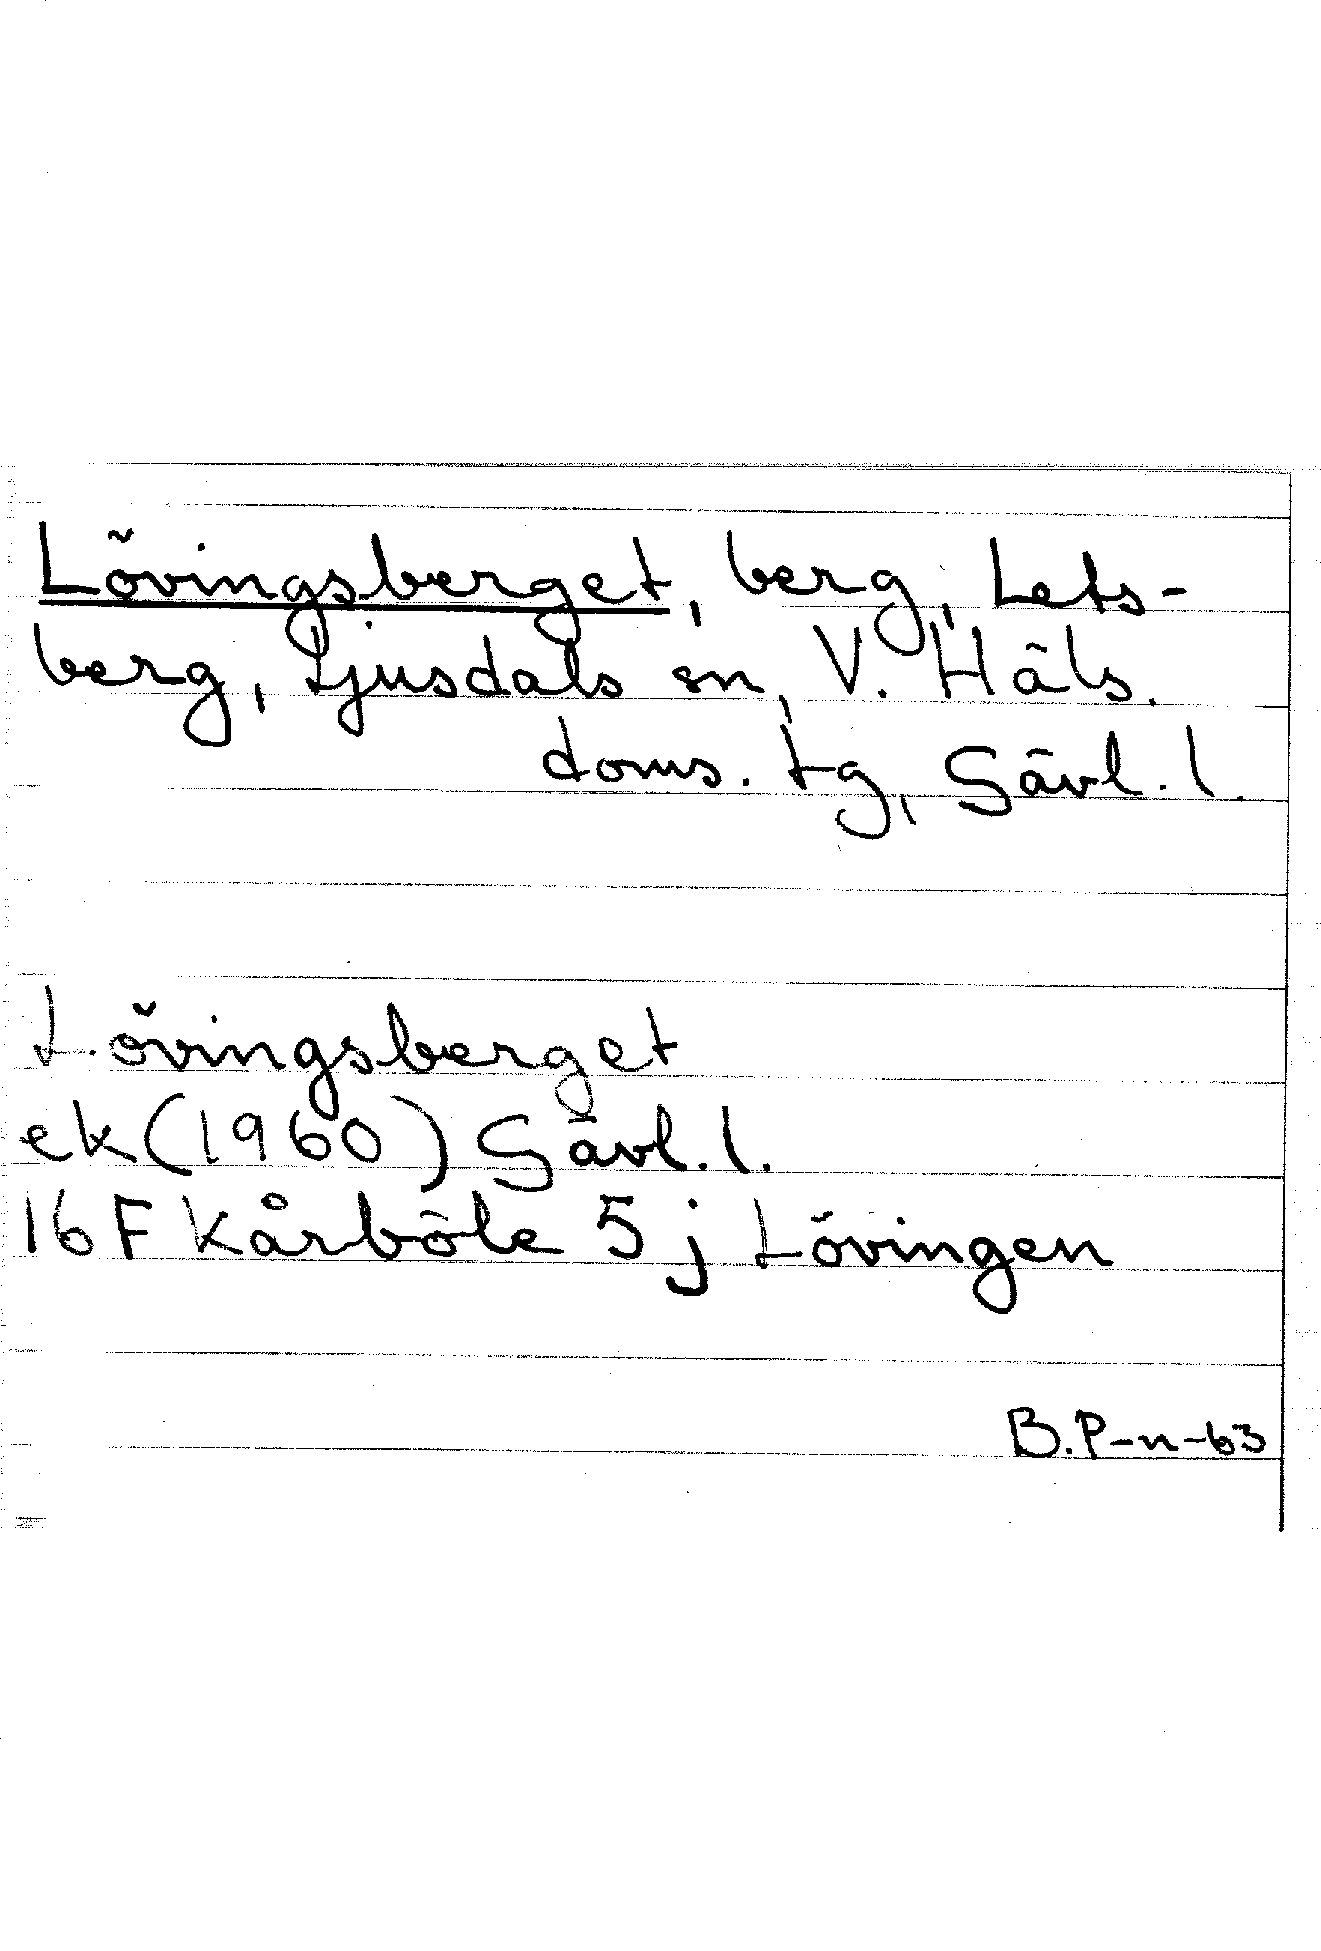 Lövingsberget, berg, Lets-
berg, Ljusdals sn, V. Häls.
doms. tg, Gävl. l.
Lövingsberget
ek (1960) Gävl. l.
16 F Kårböle 5 j Lövingen
B.P-n-63